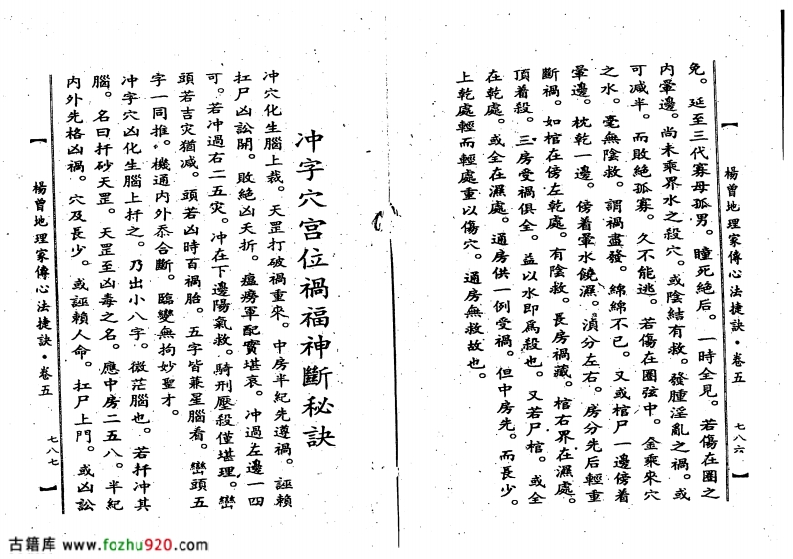 【 楊曾地理家傳心法捷訣·卷五 七八六 】
免。延至三代寡母孤男。瞳死絕后。一時全見。若傷在圈之
內暈邊。尚未乘界水之殺穴。或陰結有救。發腫淫亂之禍。或
可減半。而敗絕孤寡。久不能逃。若傷在圈弦中。金乘來穴
之水。毫無陰救。謂禍盡發。綿綿不已。又或棺尸一邊傍着
暈邊。枕乾一邊。傍着暈水饒濕。須分左右。房分先后輕重
斷禍。如棺在傍左乾處。有陰救。長房禍藏。棺右界在濕處。
頂着殺。三房受禍俱全。益以水即爲殺也。又若尸棺。或全
在乾處。或全在濕處。通房供一例受禍。但中房先。而長少。
上乾處輕而輕處重以傷穴。通房無救故也。
冲字穴宫位禍福神斷秘訣
冲穴化生腦上裁。天罡打破禍重來。中房半紀先遵禍。誣賴
扛尸凶訟開。敗絕凶夭折。瘟癆軍配實堪哀。冲過左邊一四
可。若冲過右二五灾。冲在下邊陽氣救。騎刑壓殺僅堪理。巒
頭若吉灾猶减。頭若凶時百禍胎。五字皆兼星腦看。巒頭五
字一同推。機通內外忝合斷。臨變無拘妙聖才。
冲字穴凶化生腦上扦之。乃出小八字。微茫腦也。若扦冲其
腦。名曰扦砂天罡。天罡至凶毒之名。應中房二五八。半紀
內外先格凶禍。穴及長少。或誣賴人命。扛尸上門。或凶訟
【 楊曾地理家傳心法捷訣·卷五 七八七 】
古籍库 www.fozhu920.com